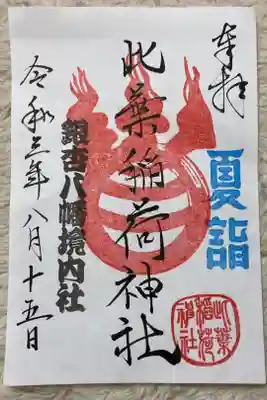 奉拝
夏詣
此葉稲荷神社
銀杏八幡境内社
令和三年八月十五日
此葉稲荷神社